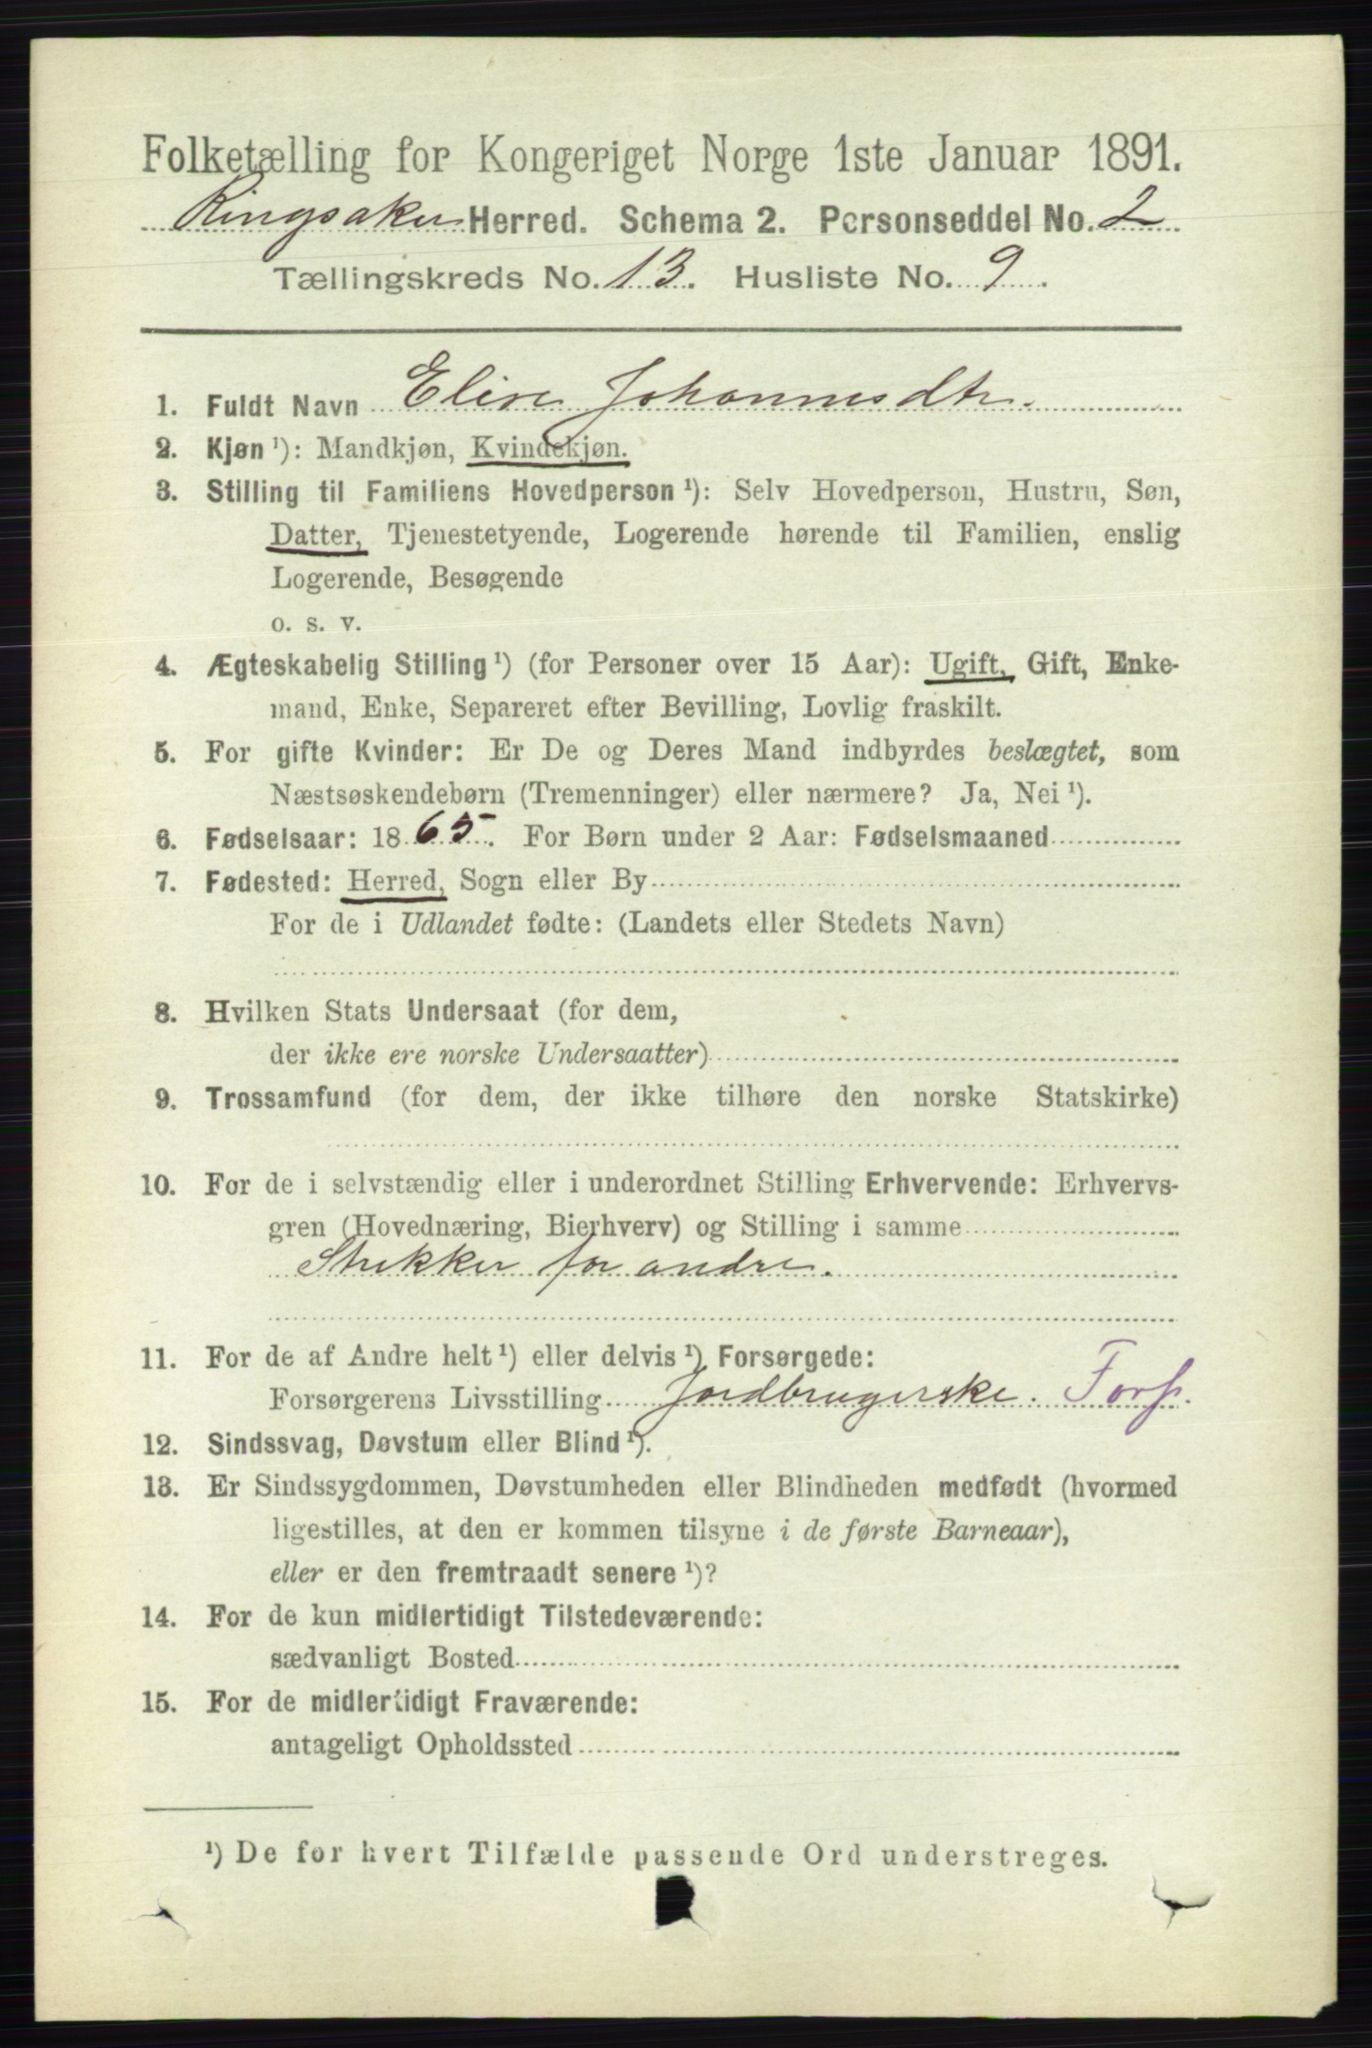 Folketælling for Kongeriget Norge 1ste Januar 1891.
Ringsaker Herred. Schema 2. Personseddel No. 2
Tællingskreds No. 13. Husliste No. 9.
1. Fuldt Navn Elise Johannesdtr.
2. Kjøn ¹): Mandkjøn, Kvindekjøn.
3. Stilling til Familiens Hovedperson ¹): Selv Hovedperson, Hustru, Søn,
Datter, Tjenestetyende, Logerende hørende til Familien, enslig
Logerende, Besøgende
o. s. v.
4. Ægteskabelig Stilling ¹) (for Personer over 15 Aar): Ugift, Gift, Enke-
mand, Enke, Separeret efter Bevilling, Lovlig fraskilt.
5. For gifte Kvinder: Er De og Deres Mand indbyrdes beslægtet, som
Næstsøskendebørn (Tremenninger) eller nærmere? Ja, Nei ¹).
6. Fødselsaar: 1865. For Børn under 2 Aar: Fødselsmaaned
7. Fødested: Herred, Sogn eller By
For de i Udlandet fødte: (Landets eller Stedets Navn)
8. Hvilken Stats Undersaat (for dem,
der ikke ere norske Undersaatter)
9. Trossamfund (for dem, der ikke tilhøre den norske Statskirke)
10. For de i selvstændig eller i underordnet Stilling Erhvervende: Erhvervs-
gren (Hovednæring, Bierhverv) og Stilling i samme
Strikker for andre.
11. For de af Andre helt ¹) eller delvis ¹) Forsørgede:
Forsørgerens Livsstilling Jordbrugerske. Fors.
12. Sindssvag, Døvstum eller Blind ¹).
13. Er Sindssygdommen, Døvstumheden eller Blindheden medfødt (hvormed
ligestilles, at den er kommen tilsyne i de første Barneaar),
eller er den fremtraadt senere ¹)?
14. For de kun midlertidigt Tilstedeværende:
sædvanligt Bosted
15. For de midlertidigt Fraværende:
antageligt Opholdssted
¹) De for hvert Tilfælde passende Ord understreges.